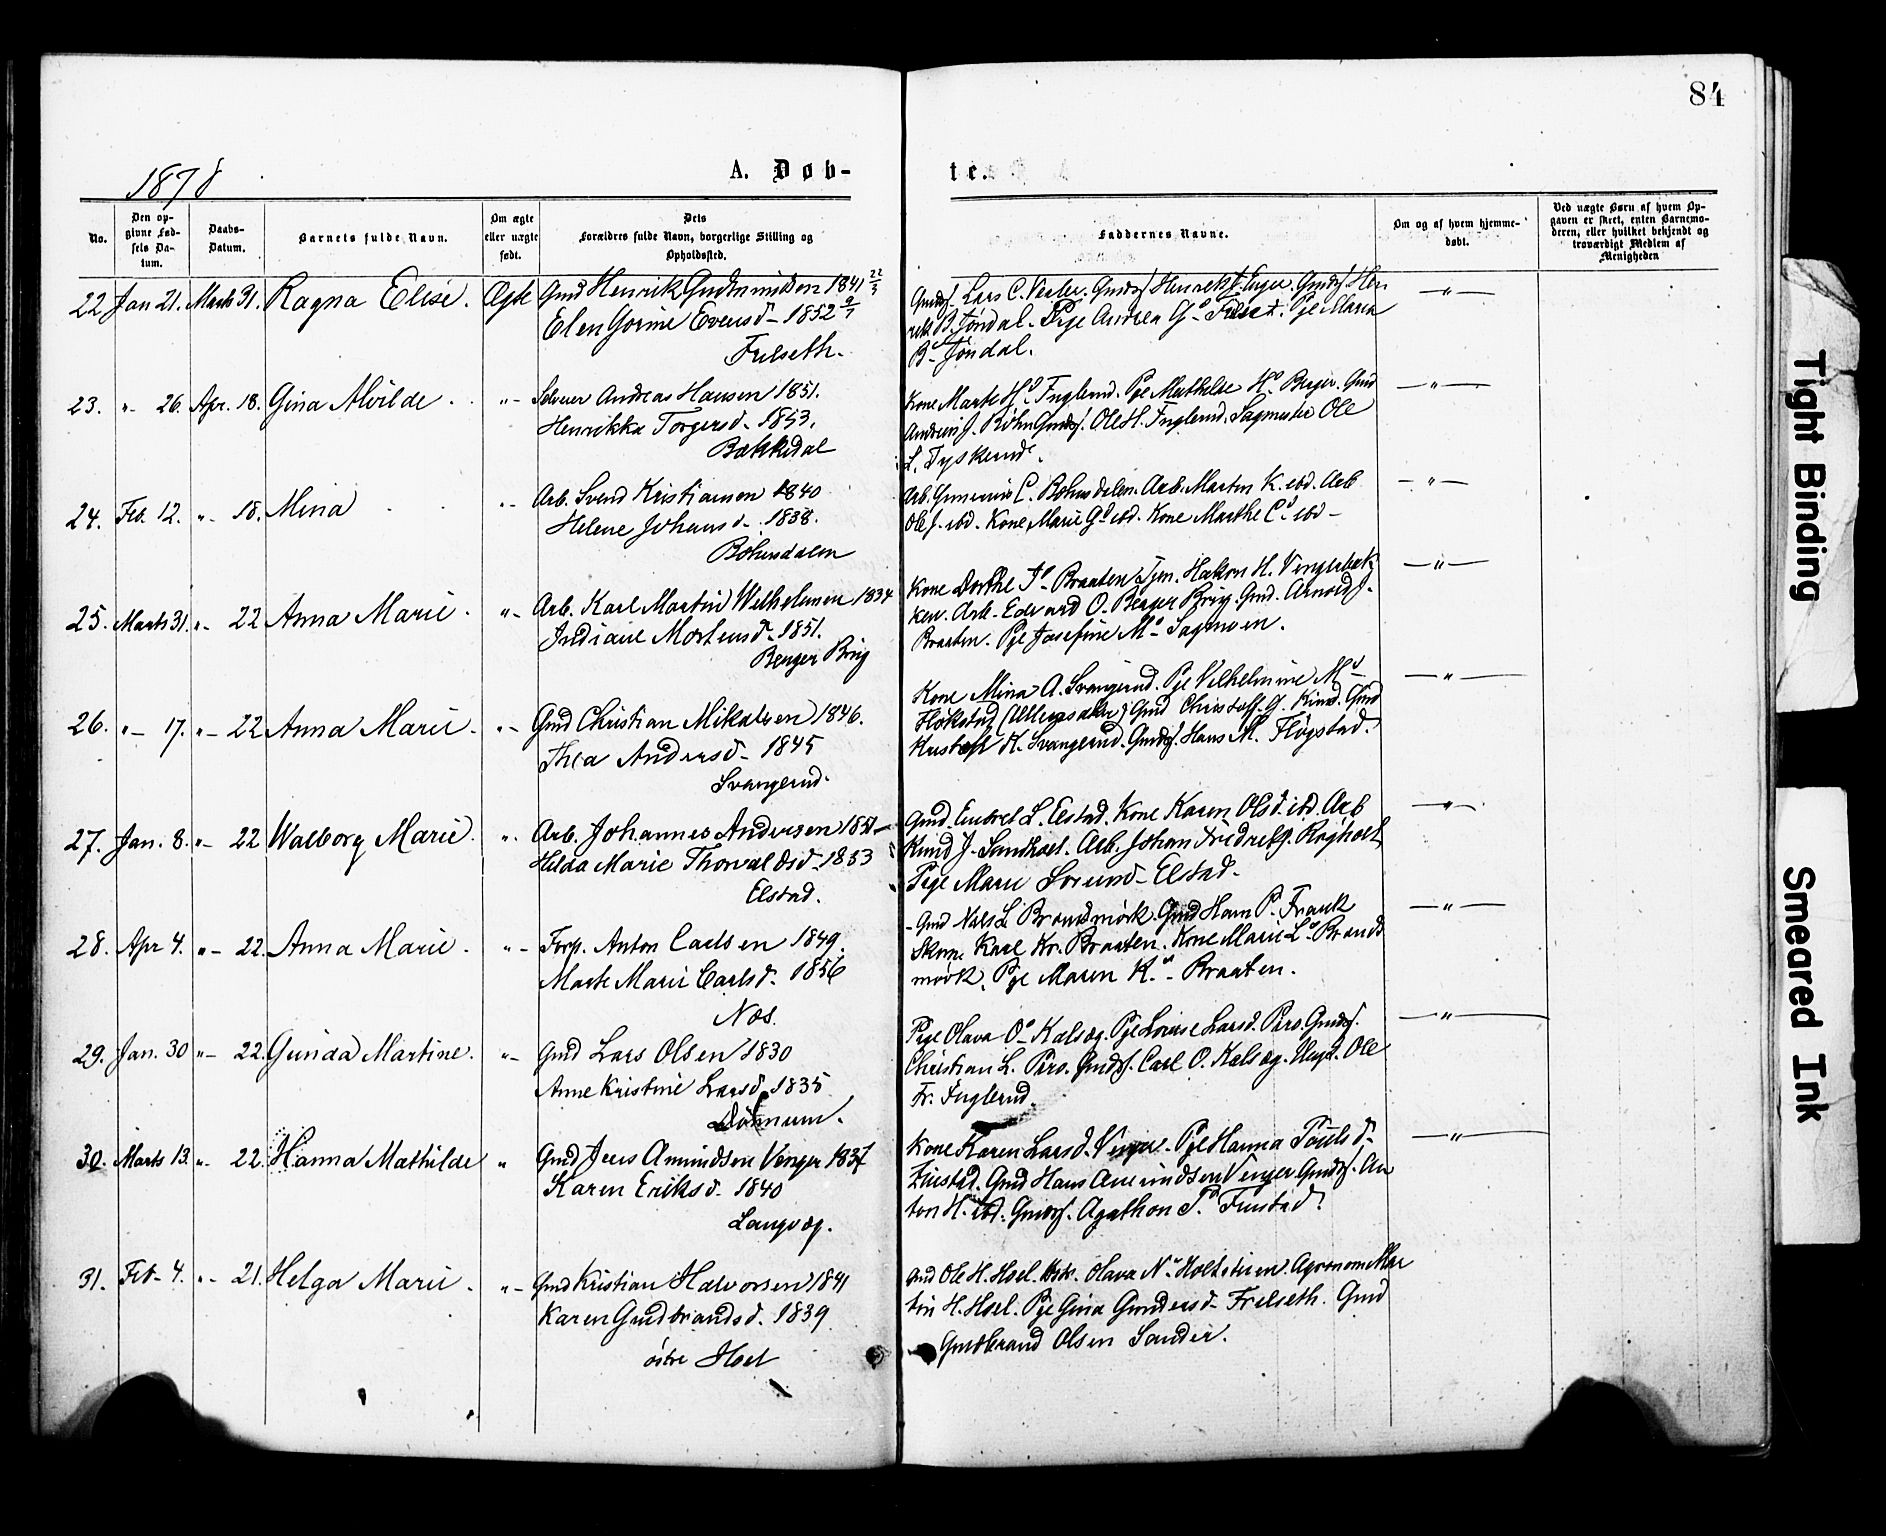 84
1878
A. Døb-
te.
No.
Den op-
givne Fød-
sels Da-
tum.
Daabs-
Datum.
Barnets fulde Navn.
Om ægte
eller uægte
født.
Dets
Forældres fulde Navn, borgerlige Stilling og
Opholdssted.
Faddernes Navne.
Om og af hvem hjemme-
døbt.
Ved uægte Børn af hvem Op-
gaven er skeet, enten Barnemo-
deren, eller hvilket bekjendt og
troværdigt Medlem af
Menigheden
22 Jan 21. Marts 31. Ragna Elise. Ægte Gmd Henrik Gudmundsen 1841 22/3
Elen Gorine Evensd - 1852 9/7
Frelseth.
Gmdsf. Lars C. Vesler. Gmdsf Henrik Enger. Gmdsf Hen
rik B. Jøndal. Pige Andrea Gd Pge Maria
Bd Jøndal.
23. " - 26. Apr. 18. Gina Alvilde. " - Selveier Andreas Hansen 1851.
Henrikka Torgersd. 1853.
Bækkedal
Kone Marte Hd Fuglerud. Pge Mathilde Hd Berger. Gmd
J. Gmdsf. Ole H. Fuglerud. Ole
L. Tyskerud.
24. Feb. 12. " - 18. Mina " - Arb. Svend Kristiansen 1840
Helene Johansd - 1838.
Bøhnsdalen
Arb. C. Bøhnsdalen. Arb. Martin K. ibd. Arb
Ole J. ibd. Kone Marie Gd ibd. Kone Marthe Cd ibd -
25. Marts 31. " - 22 Anna Marie. " - Arb. Karl Martin Wilhelmsen 1834
Indiane Mortensd - 1851.
Berger Brig
Kone Dorthe Braaten Tjen. Hakon H.
Arb. Edvard O. Berger Brig. Gmd. Arnold J.
Braaten. Pge Josefine Md Sagmoen.
26. " - 17. " - 22 Anna Marie. " - Gmd Christian Mikalsen 1846.
Thea Andersd - 1845
Svangerud.
Kone Mina A. Svangerud. Pge Vilhelmine Md
Fløkstad (Ullensaker) Gmd Christoff. G. Gmd
H. Svangerud. Gmdsf. Hans M. Fløgstad.
27. Jan. 8. " - 22 Walborg Marie. ". Arb. Johannes Andersen 1851
Hilda Marie Thorvaldsd - 1853
Elstad.
Gmd. L. Elstad. Kone Karen Olsd. ibd. Arb
Knud J. Sandholt. Arb. Johan
Pige Marie - Elstad.
28. Apr 4. " - 22. Anna Marie. " - Forp. Anton Carlsen 1849.
Marte Marie Carlsd. 1856
Næs.
- Gmd Nils L. Brandmørk. Gmd Hans P. Frank
Skom. Karl Kr. Braaten. Kone Marie Ld Brand
mørk. Pge Maren Kd - Braaten.
29. Jan. 30 " - 22. Gunda Martine. " - Gmd Lars Olsen 1830
Anne Kristine Larsd. 1835
Pige Olava Od Kalsæg. Pge Louise Larsd. Gmdsf.
Christian L. Gmdsf. Carl O. Kalsæg. Ungk. Ole
Fr. Fuglerud.
30. Marts 13. " - 22. Hanna Mathilde " Gmd Jens Amundsen Venger 1837
Karen Eriksd - 1840
Langvæg.
Kone Karen Larsd. Venger. Pge Hanna Poulsd -
Finstad. Gmd Hans Amundsen Venger Gmdsf. An
ton H. ibd. Gmdsf. Agathon P. Finstad.
31. Feb - 4. " - 21. Helga Marie. " - Gmd Kristian Halvorsen 1841
Karen Gudbrandsd. 1839
østre Hoel
Gmd Ole H. Hoel. Olava Nd Agronom Mar
tin H. Hoel. Pge Gina Gundersd - Frelseth. Gmd
Gudbrand Olsen Sander.
Tight Binding
Smeared Ink